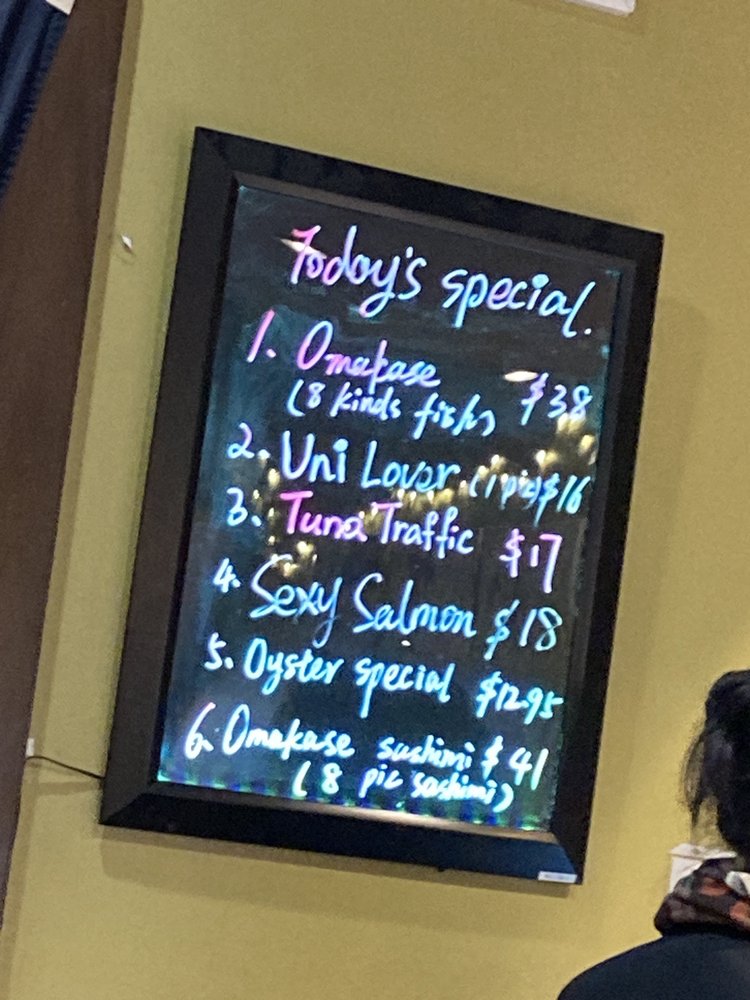 Today's special.
1. Omakase $38
(8 kinds fish)
2. Uni Lover (1 pic) $16
3. Tuna Traffic $17
4. Sexy Salmon $18
5. Oyster special $12.95
6. Omakase sashimi $41
(8 pic sashimi)